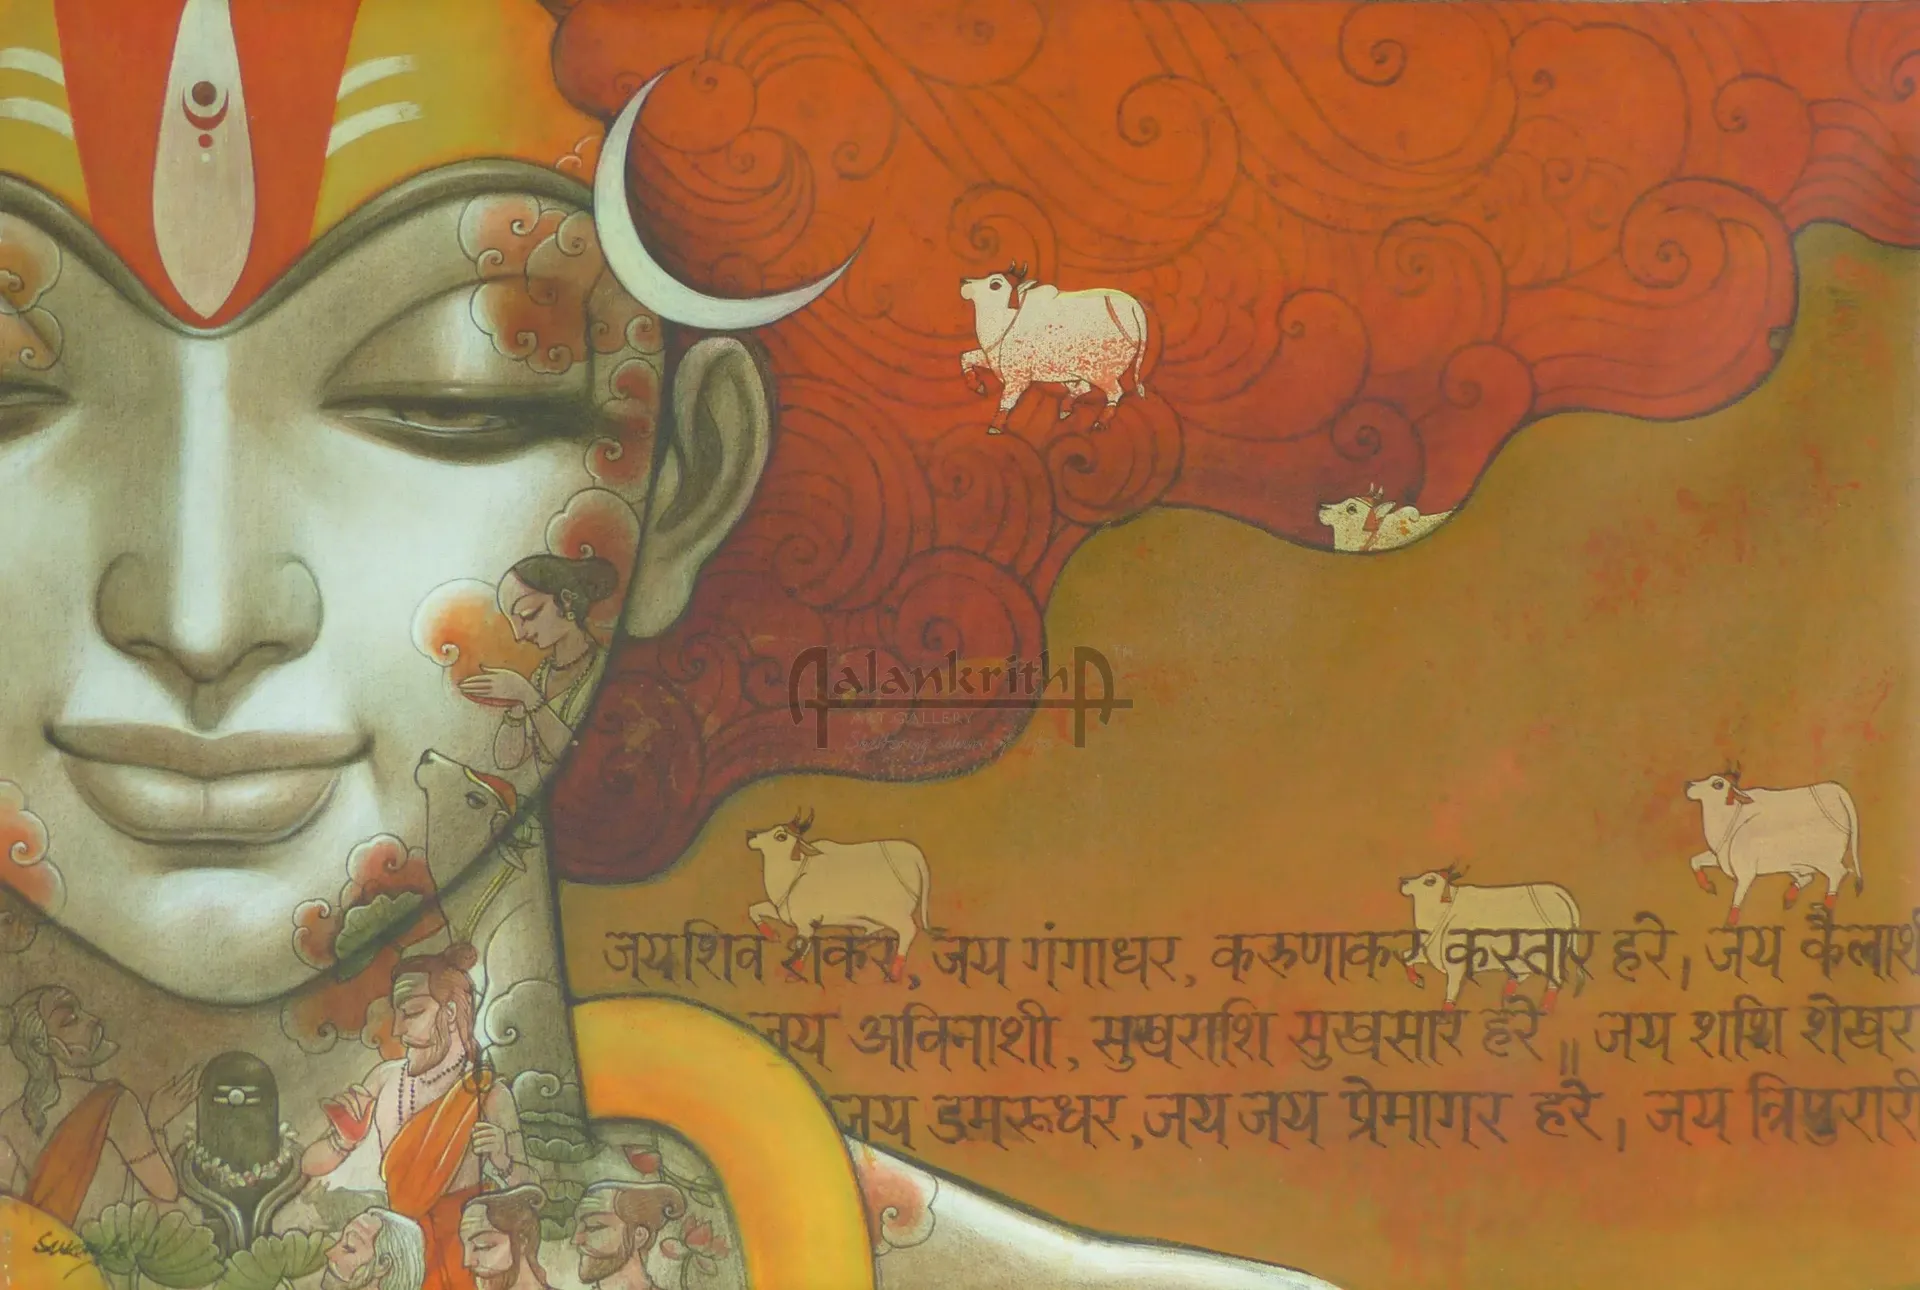 AalankrithA
ART GALLERY
जय शिव शंकर, जय गंगाधर, करुणाकर करतार हरे। जय कैलाशी
जय अविनाशी, सुखराशि सुखसार हरे॥ जय शशि शेखर
जय डमरूधर, जय जय प्रेमागर हरे। जय त्रिपुरारी